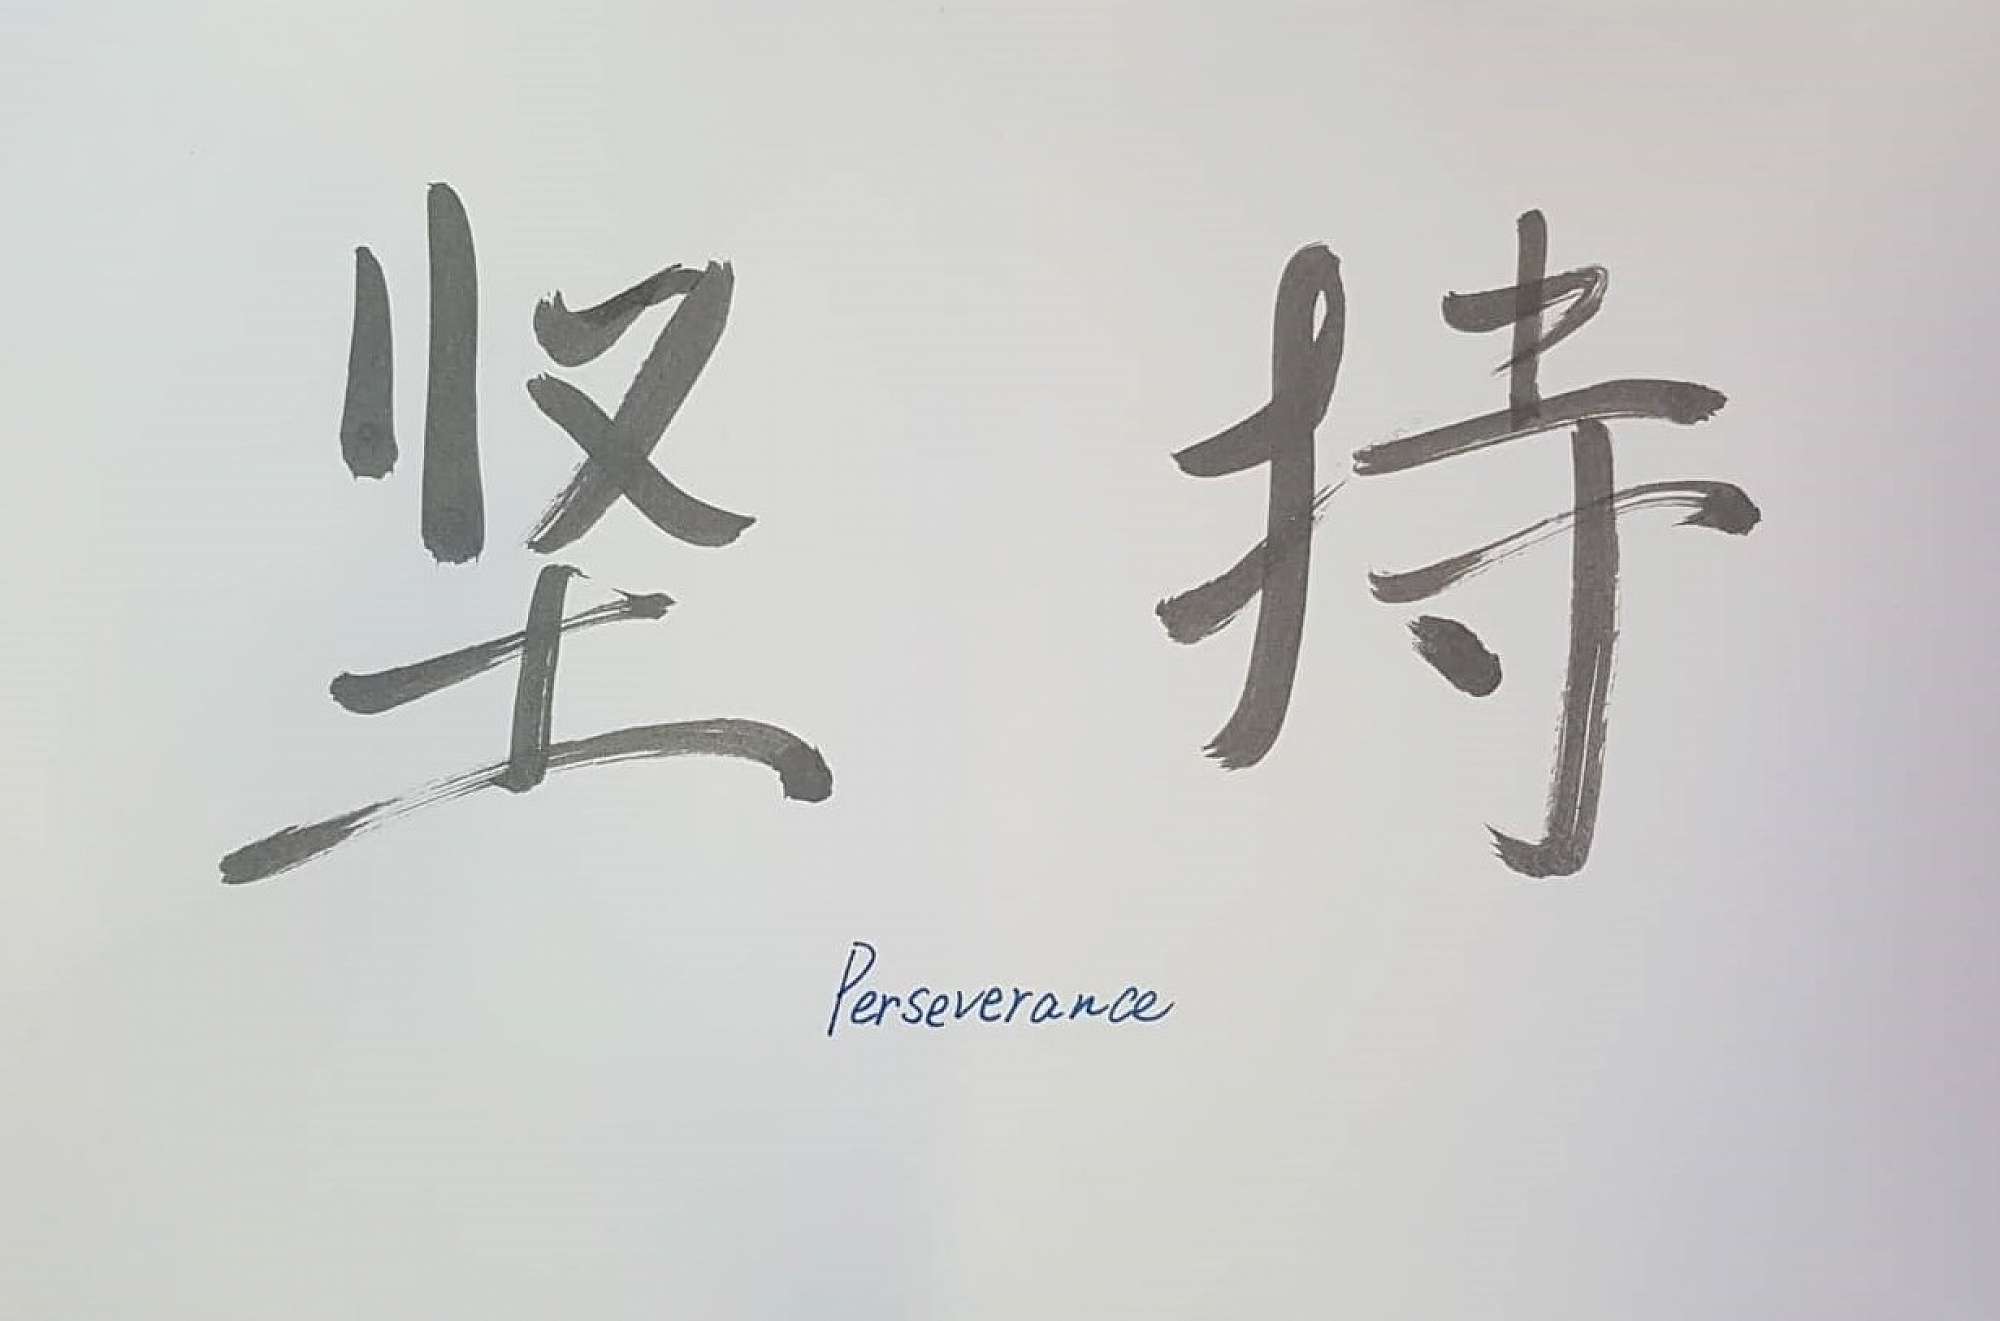 坚持
Perseverance